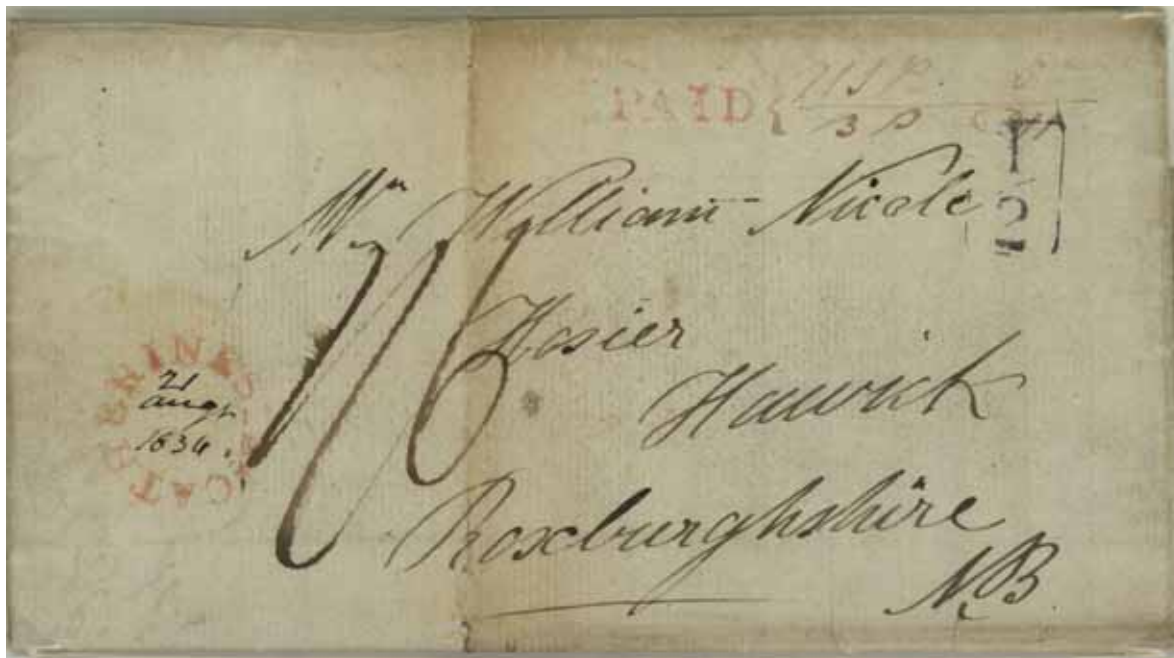 PAID
½
Mr William Nicole
1/6
Hosier
Hawick
Roxburghshire
N.B
ST CATHERINES
21
augt
1834.